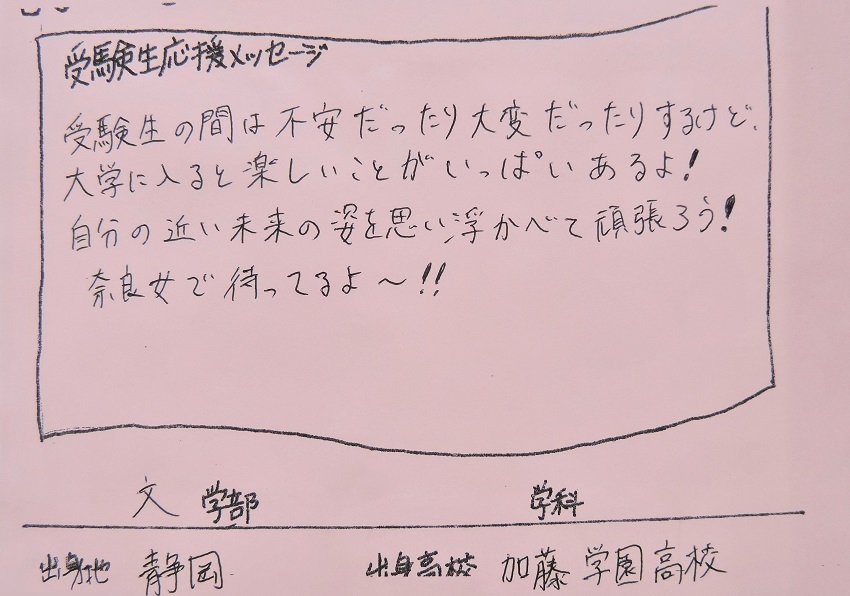 受験生応援メッセージ
受験生の間は不安だったり大変だったりするけど、
大学に入ると楽しいことがいっぱいあるよ!
自分の近い未来の姿を思い浮かべて頑張ろう!
奈良女で待ってるよ～!!
文 学部 学科
出身地 静岡 出身高校 加藤学園高校